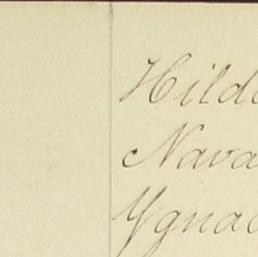 Hild
Nava
Ygnac